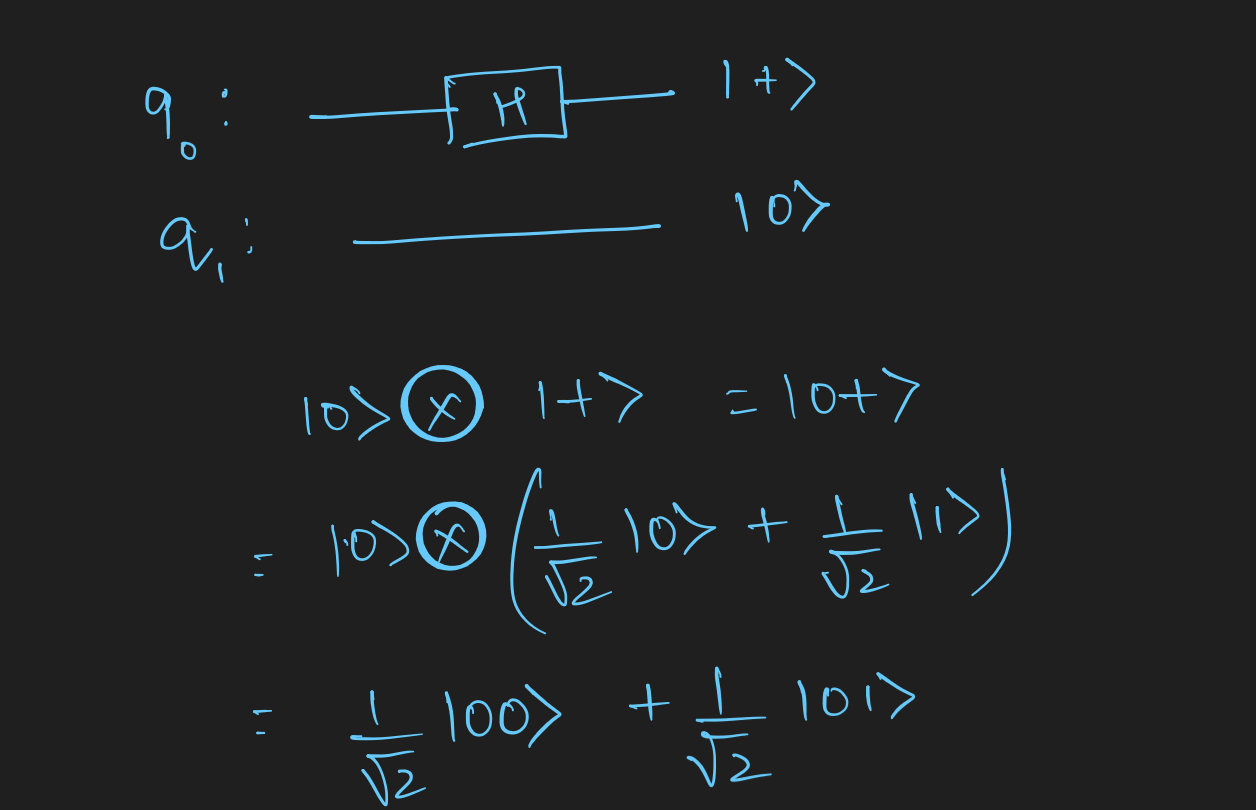 q₀ : H |+>
q₁ : |0>
|0> ⊗ |+> = |0+>
= |0> ⊗ (1/√2 |0> + 1/√2 |1>)
= 1/√2 |00> + 1/√2 |01>